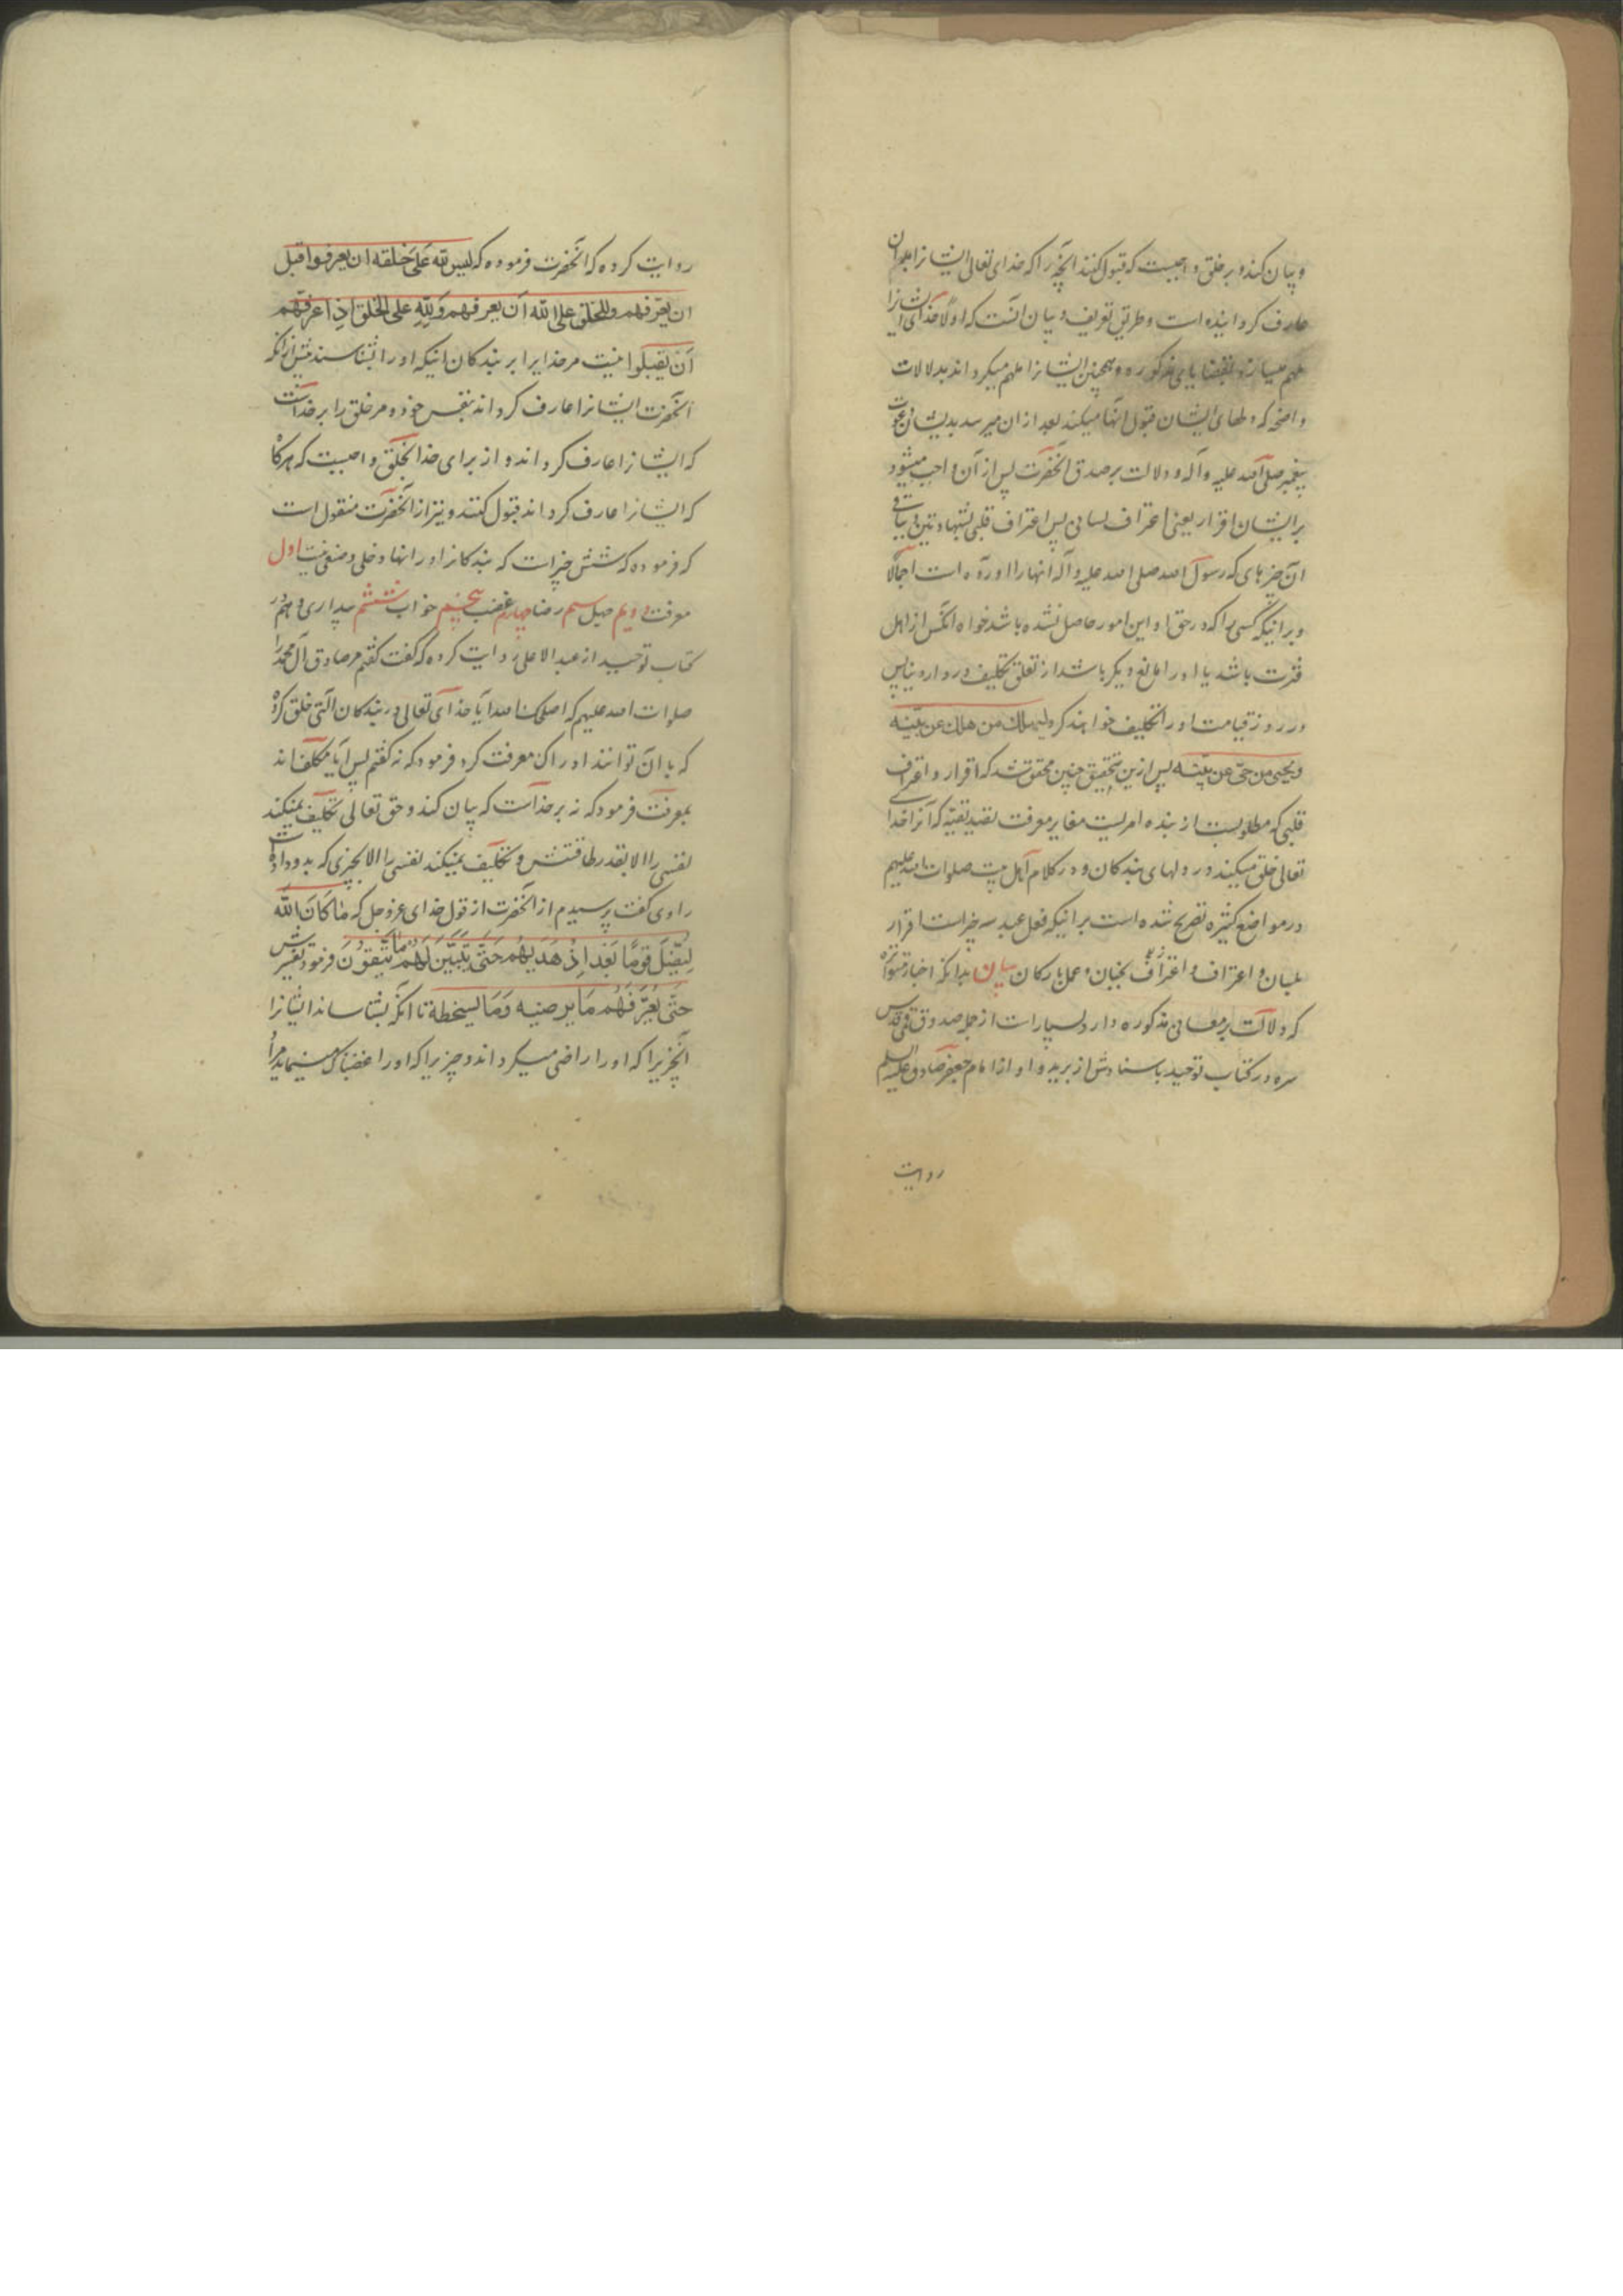 و بیان کند و بر خلق واجبست که قبول کنند آنچه را که خدای تعالی ایشانرا بدان
عارف گردانیده است و طریق تعریف و بیان آنست که اولا خدای ایشانرا
ملهم میسازد بقضایای مذکوره و همچنین ایشانرا ملهم میکرداند بدلالات
واضحه که دلهای ایشان قبول آنها میکند بعد از ان میرسد بدیشان دعوت
پیغمبر صلی الله علیه و آله و دلالت بر صدق آنحضرت پس از آن واجب میشود
بر ایشان اقرار یعنی اعتراف لسانی پس اعتراف قلبی بشهادتین و بباقی
آن چیزهای که رسول الله صلی الله علیه و آله آنها را آورده است اجمالا
و بر اینکه کسی را که در حق او این امور حاصل نشده باشد خواه آنکس از اهل
فترت باشد یا او را مانع دیگر باشد از تعلق تکلیف در دار دنیا پس
در روز قیامت او را تکلیف خواهند کرد لیهلك من هلك عن بینه
ویحیی من حی عن بینه پس ازین تحقیق چنین محقق شد که اقرار و اعتراف
قلبی که مطلوبست از بنده امریست مغایر معرفت که آنرا خدای
تعالی خلق میکند در دلهای بندکان و در کلام اهل بیت صلوات الله علیهم
در مواضع کثیره تصریح شده است بر اینکه فعل عبد سه چیز است اقرار
بلسان و اعتراف بجنان و عمل بارکان بیان بدانکه اخبار متواتره
که دلالت بر معانی مذکوره دارد بسیار است از جمله صدوق قدس
سره در کتاب توحید باسنادش از برید و او از امام جعفر صادق علیه السلم
روایت
روایت کرده که آنحضرت فرموده که لیس لله علی خلقه ان یعرفوا قبل
ان یعرفهم وللخلق علی الله ان یعرفهم ولله علی الخلق اذا عرفهم
ان یقبلوا نیست مر خدایرا بر بندکان اینکه او را بشناسند پیش از آنکه
آنحضرت ایشانرا عارف کرداند بنفس خود و مر خلق را بر خداست
که ایشانرا عارف کرداند و از برای خدا بخلق واجبست که هرگاه
که ایشانرا عارف کرداند قبول کنند و نیز از آنحضرت منقول است
که فرموده که شش چیز است که بندکانرا در انها دخلی و صنعی نیست اول
معرفت دویم جهل سیم رضا چهارم غضب پنجم خواب ششم بیداری و هم در
کتاب توحید از عبد الاعلی روایت کرده که گفت گفتم مر صادق آل محمد را
صلوات الله علیهم که اصلحك الله آیا خدای تعالی در بندکان آلتی خلق کرده
که بآن توانند ادراک معرفت کرد فرمود که نه گفتم پس آیا مکلف اند
بمعرفت فرمود که نه بر خداست که بیان کند و حق تعالی تکلیف نمیکند
نفسی را الا بقدر طاقتش و تکلیف نمیکند نفسی را الا بچیزی که بدو داده
راوی گفت پرسیدم از آنحضرت از قول خدای عز و جل که ما كَانَ الله
لِیُضِلَّ قومًا بَعْدَ اِذْ هَدیهُم حَتّی یُبَیِّنَ لَهُم مٰا یَتّقُونَ فرمود تفسیرش
حَتّی یُعَرِّفَهُم مَا یرضیه وَمَا یسخطه تا آنکه بشناساند ایشانرا
آنچیزیرا که او را راضی میکرداند و چیزیرا که او را غضبناک مینماید